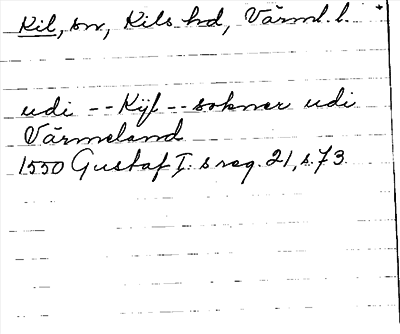 Kil, sn, Kils hd, Värml. l.
udi -- Kijl -- soknar udi
Värmeland
1550 Gustaf I:s reg. 21, s. 73